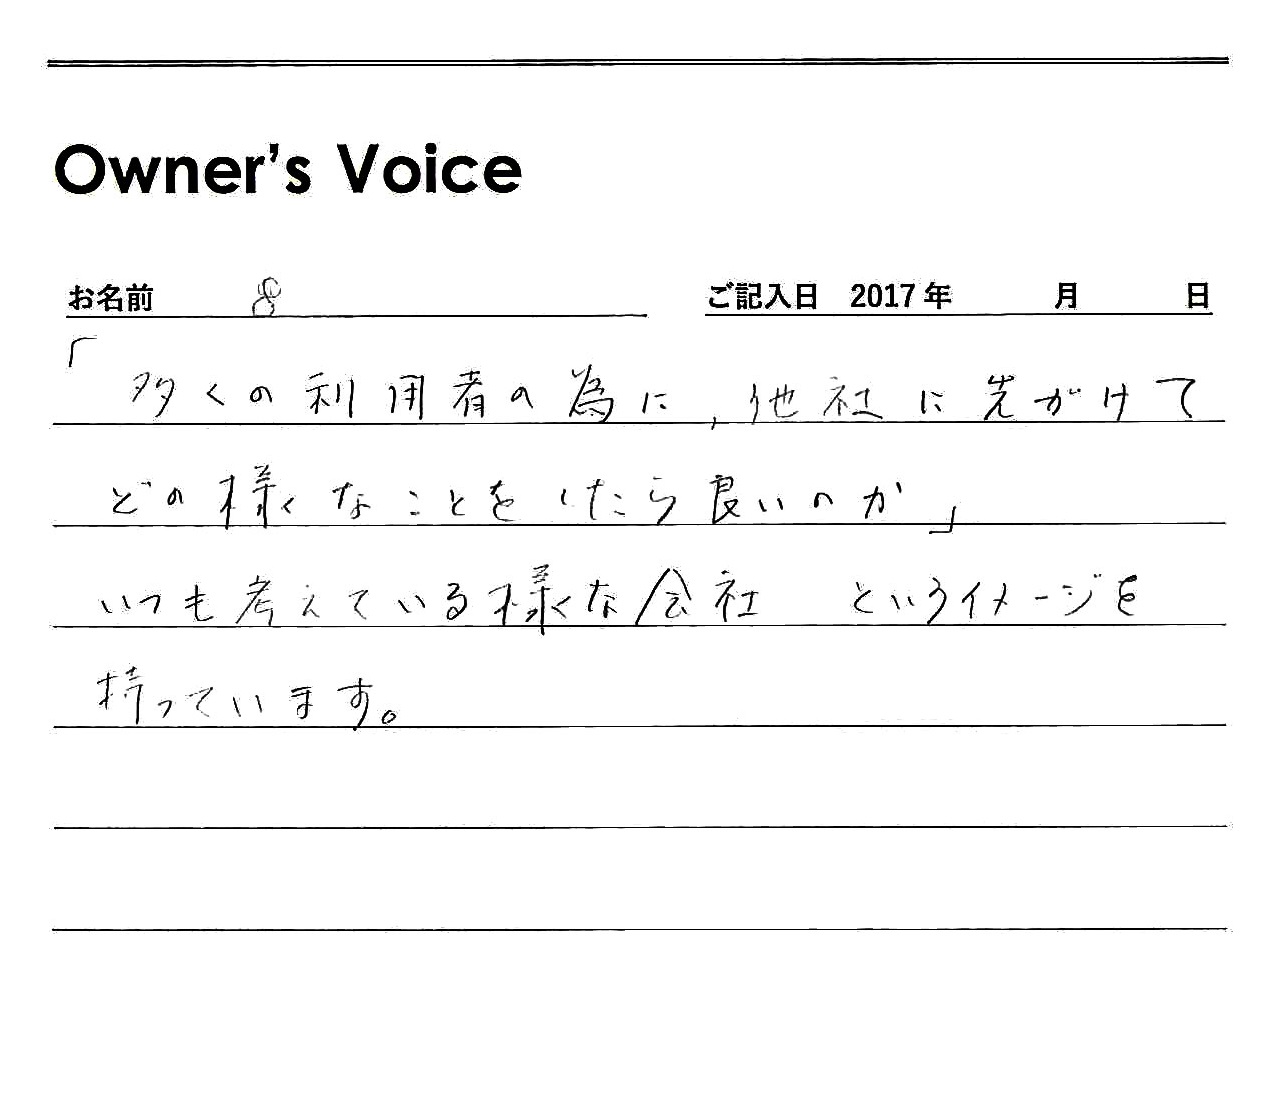 Owner's Voice
お名前 ご記入日 2017年 月 日
「多くの利用者の為に,他社に先がけて
どの様なことをしたら良いのか」
いつも考えている様な会社 というイメージを
持っています。